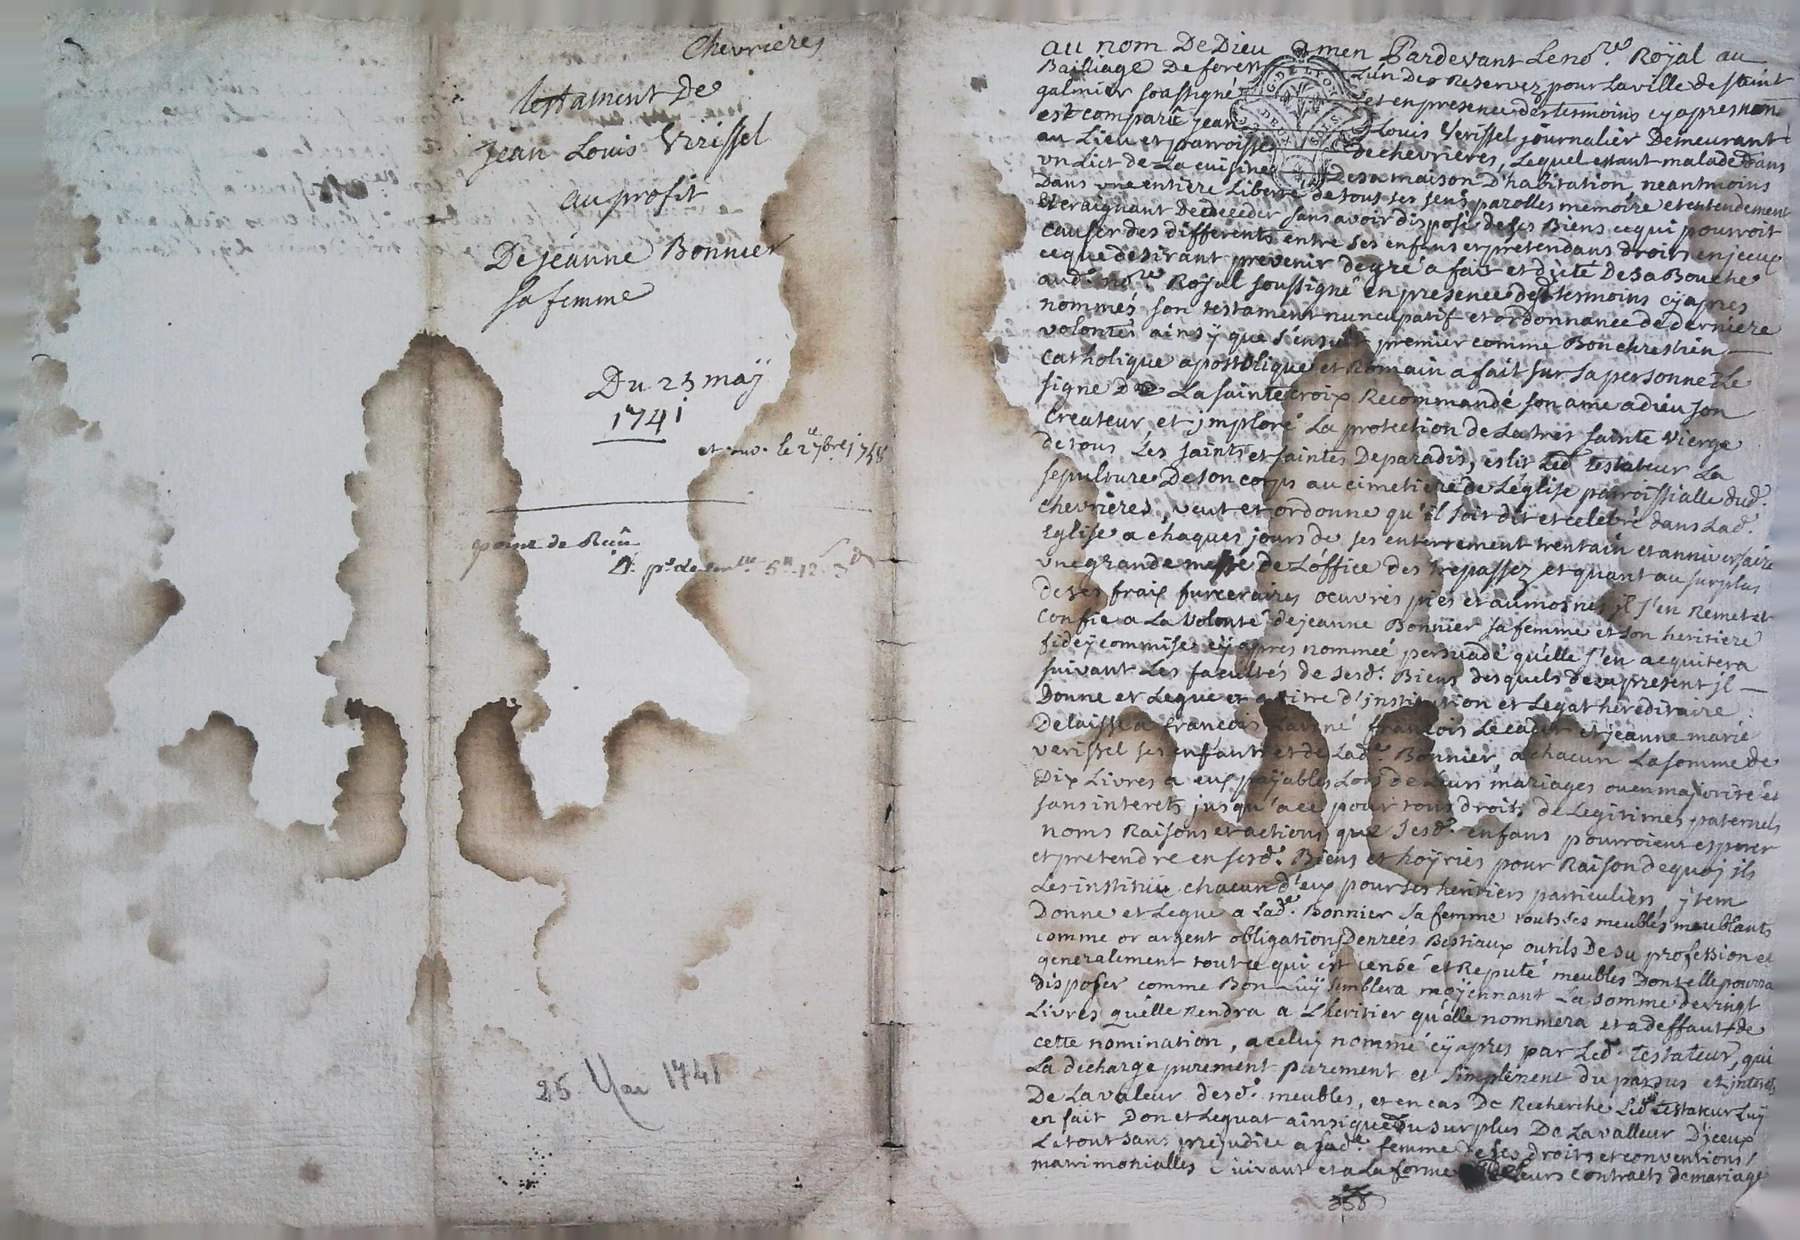 Chevrieres
testament De
Jean Louis Verissel
au profit
De jeanne Bonnier
sa femme
Du 25 maÿ
1741
et suo. le 27bre 1748
25 Mai 1741
au nom De Dieu Amen Pardevant Le no.re Roÿal au
Bailliage De forest L'un des Reservez pour La ville de saint
galmier soussigné et en presence des temoins cy apres nom
est comparu jean Louis Verissel journalier Demeurant
au Lieu et parroisse de chevrieres, Lequel estant malade dans
un Lict de La cuisine De sa maison D'habitation, neantmoins
Dans une entiere Liberté de tous ses sens parolles memoire et entendement
Et craignant De deceder sans avoir disposé de ses Biens ce qui pourroit
causer des differents entre ses enfans et pretendans droits en jceux
ce que desirant prevenir de gré a fait et dicté De sa Bouche
aud. no.re Roÿal soussigné en presence des temoins cy apres
nommés son testament nuncupatif et ordonnance de derniere
volonté ainsÿ que s'ensuit premier comme Bon chrestien
catholique apostolique et Romain a fait sur sa personne Le
signe De La sainte croix Recommandé son ame a dieu son
Createur, et jmploré La protection de La tres sainte vierge
de tous Les saints et saintes De paradis, eslit Led. testateur La
sepulture De son corps au cimetiere de L'église parroissialle dud.
chevrieres, veut et ordonne qu'il soit dit et celebré dans Lad.
Eglise a chaques jours de ses enterrement trentain et anniversaire
une grande messe de L'office des trepassez et quant au surplus
de ses fraix funeraires oeuvres pies et aumosnes jl s'en Remet et
confie a La volonté de jeanne Bonnier sa femme et son heritiere
fideÿcommise cy apres nommée persuadé qu'elle s'en acquitera
suivant Les facultés de sesd. Biens desquels de apresent jl
Donne et Legue et a titre d'jnstitution et Legat hereditaire
Delaisse a francois L'ainé francois Le cadet et jeanne marie
verissel ses enfants et de Lad.e Bonnier, a chacun La somme de
Dix Livres a eux paÿables Lors de Leurs mariages ou en majorité et
sans interets jusqu'a ce pour tous droits de Legitimes paternels
noms Raisons et actions que sesd. enfans pourroient esperer
et pretendre en sesd. Biens et hoÿries pour Raison de quoj jls
Les institue chacun d'eux pour ses heritiers particuliers jtem
Donne et Legue a Lad.e Bonnier sa femme touts ses meubles meublants
comme or argent obligations Denreés Bestiaux outils De sa profession et
generalement tout ce qui est censé et Reputé meubles Dont elle pourra
disposer comme Bon Luÿ semblera moÿennant La somme de vingt
Livres qu'elle Rendra a L'heritier qu'elle nommera et a deffaut de
cette nomination, a celuy nommé cÿ apres par Led. testateur, qui
La decharge purement Purement et simplement du pardus et jnterets
De La valeur desd. meubles, et en cas De Recherche Led. testateur Luÿ
en fait Don et Lequat ainsi que Du surplus De La valleur D'jceux
Le tout sans prejudice a sad.e femme de ses droits et conventions
matrimonialles suivant et a La forme de Leurs contracts de mariage